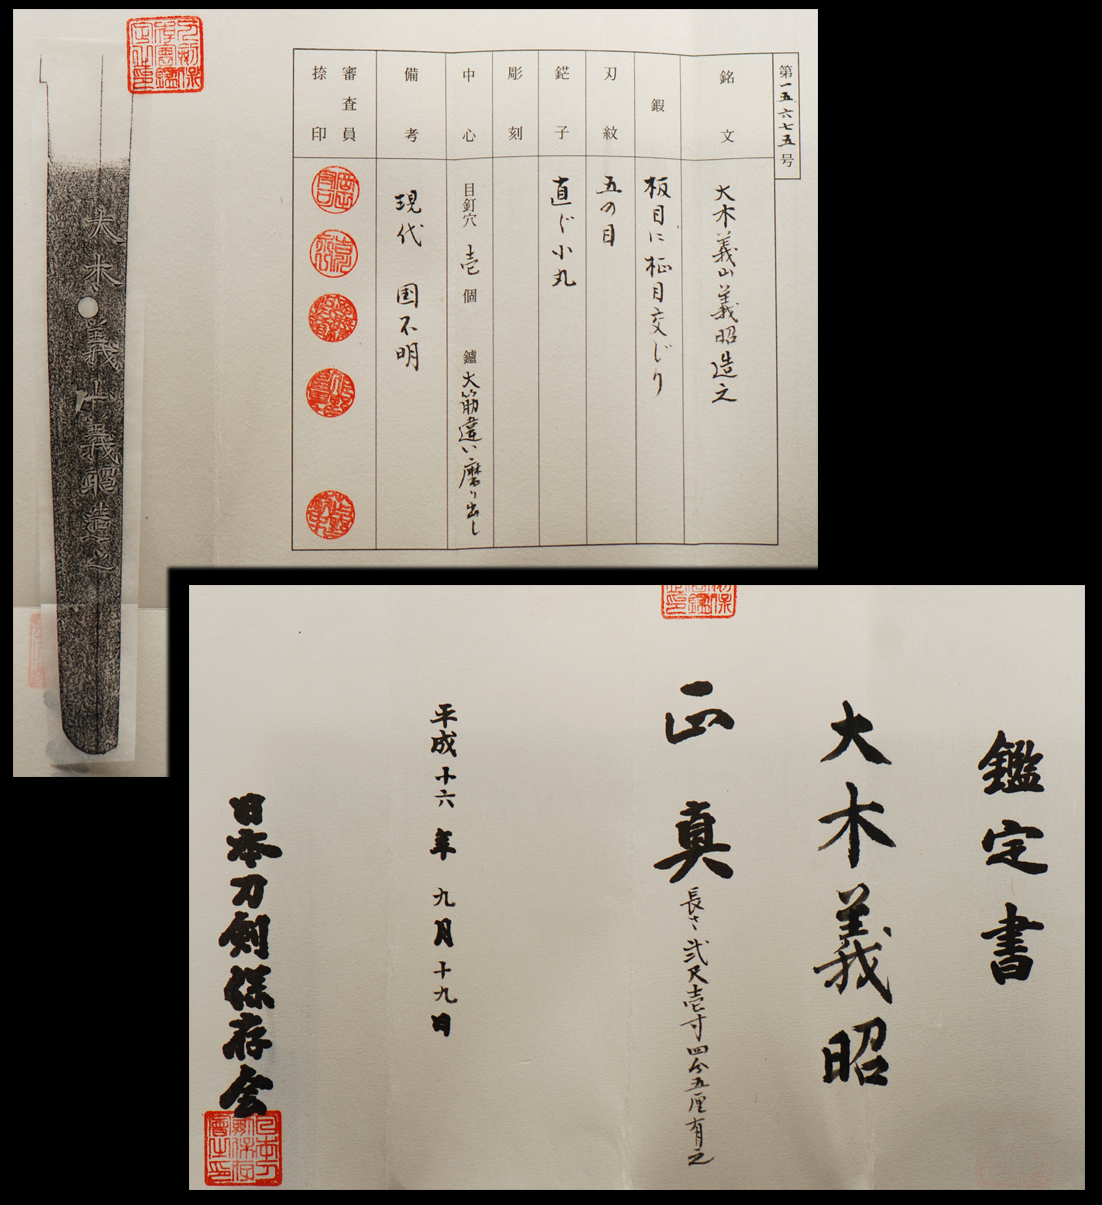 第一五六七五号
銘文
大木義山義昭造之
鍜
板目に柾目交じり
刃紋
五の目
鋩子
直ぐ小丸
彫刻
中心
目釘穴 壱個 鑢 大筋違い磨り出し
備考
現代 国不明
審査員
捺印
大木義山義昭造之
鑑定書
大木義昭
正真
長さ弐尺壱寸四分五厘有之
平成十六年九月十九日
日本刀剣保存会